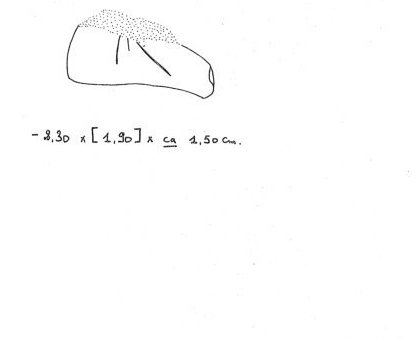 - 3,30 x [1,90] x ca 1,50 cm.